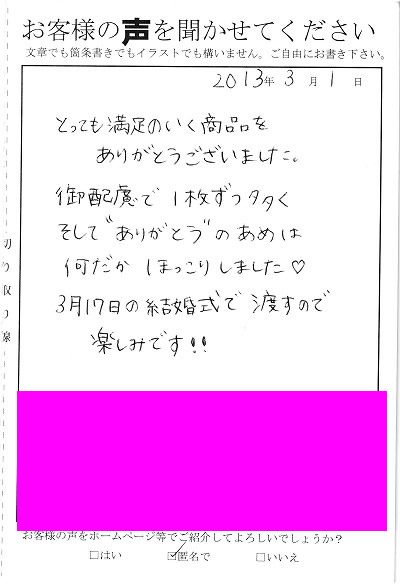 お客様の声を聞かせてください
文章でも箇条書きでもイラストでも構いません。ご自由にお書き下さい。
2013年 3月 1日
とっても満足のいく商品を
ありがとうございました。
御配慮で 1枚ずつ多く
そして"ありがとう"のあめは
何だか ほっこりしました♡
3月17日の結婚式で 渡すので
楽しみです!!
切り取り線
お客様の声をホームページ等でご紹介してよろしいでしょうか?
□はい ☑匿名で □いいえ